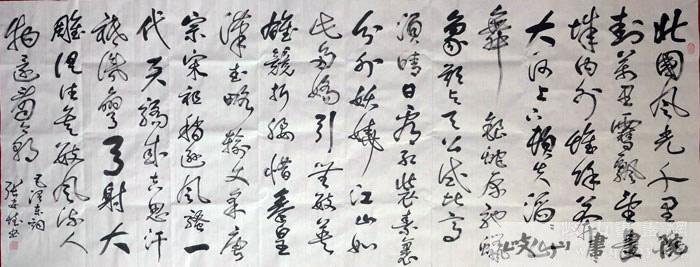 北國风光千里
封万里雪飘望
城内外惟余莽
大河上下顿失滔
舞銀蛇原馳蠟
象欲与天公试比高
须晴日看红装素裹
分外妖娆 江山如
此多娇引無数英
雄競折腰惜秦皇
漢武略輸文采唐
宗宋祖稍逊风骚一
代天骄成吉思汗
祇識彎弓射大
雕俱往矣数风流人
物還看今朝
毛澤东词
書畫院